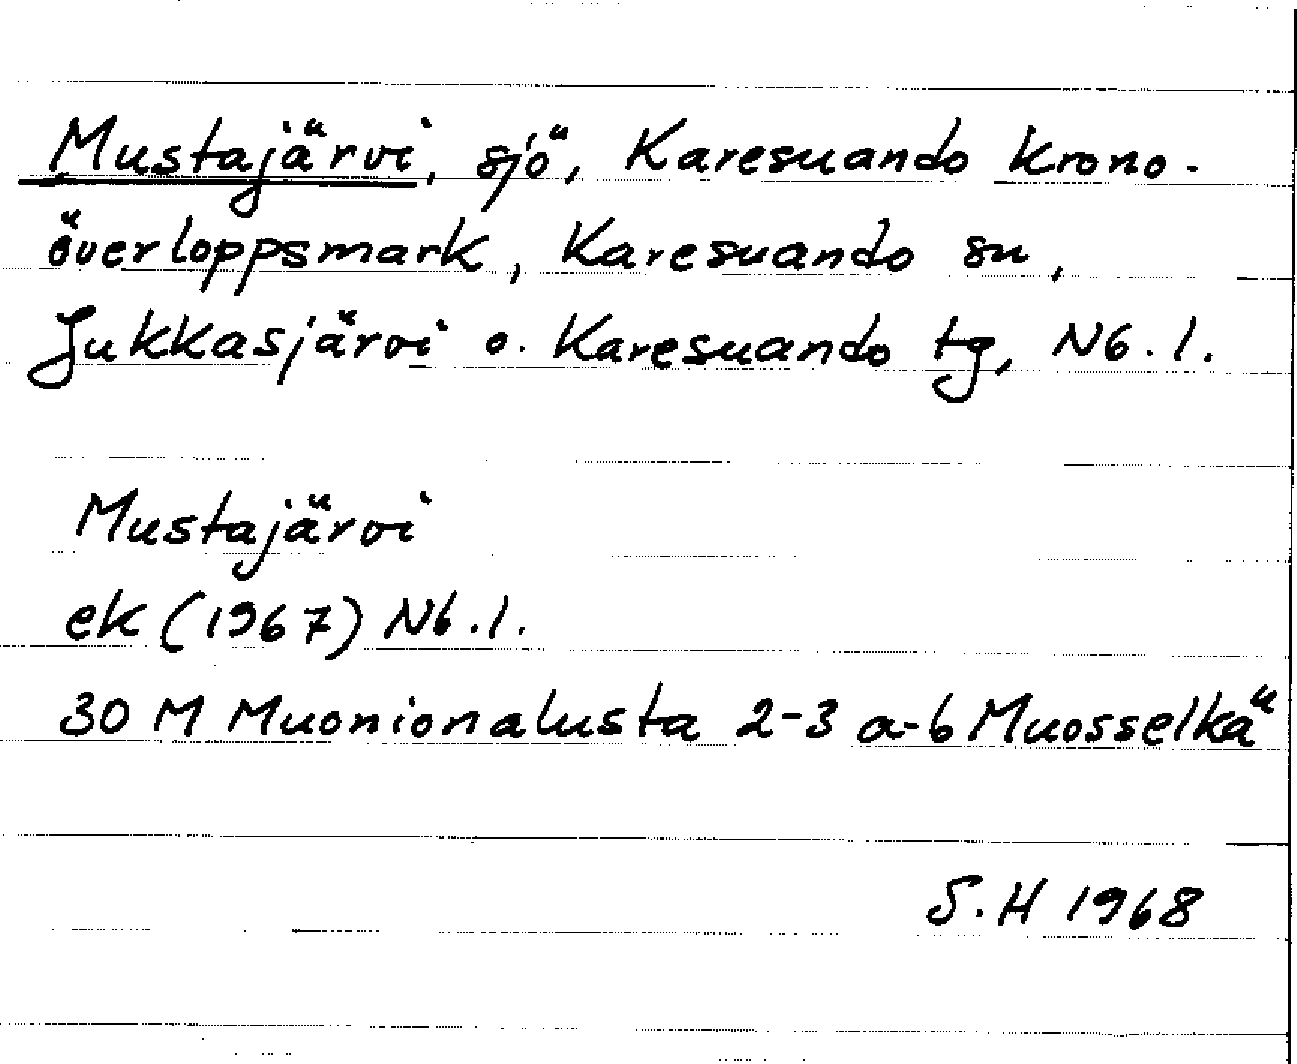 Mustajärvi, sjö, Karesuando krono-
överloppsmark, Karesuando sn,
Jukkasjärvi o. Karesuando tg, Nb. l.
Mustajärvi
ek (1967) Nb. l.
30 M Muonionalusta 2-3 a-b Muosselkä
S. H 1968